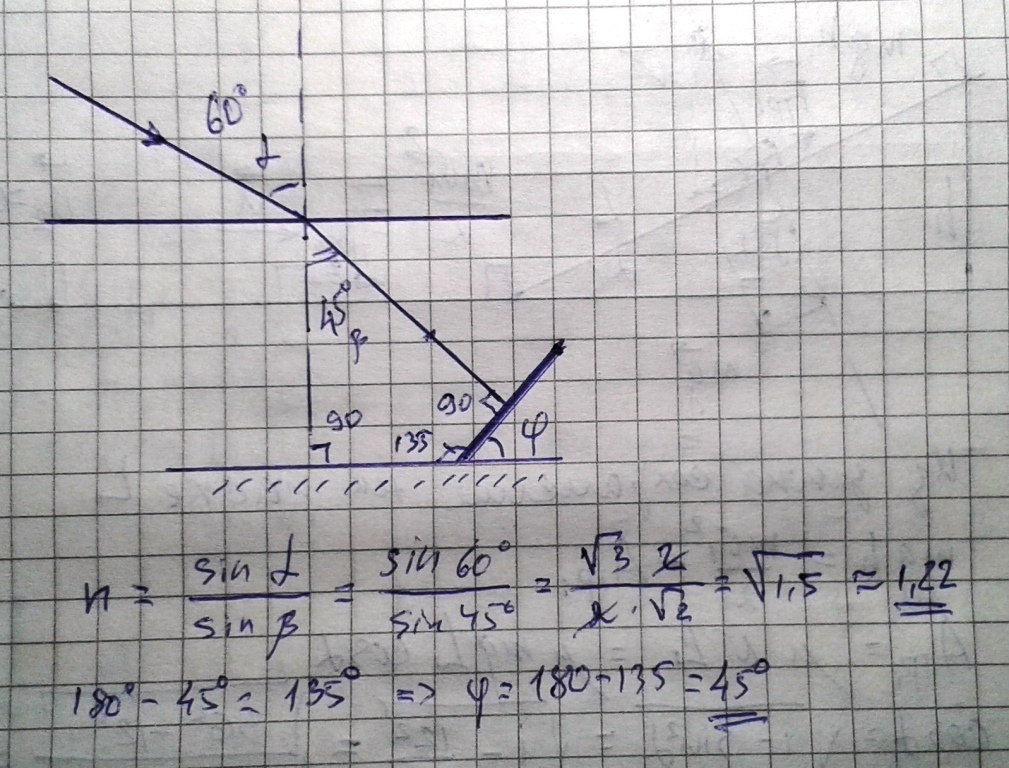 60°
α
45°
β
90
90
135
φ
n = sin α / sin β = sin 60° / sin 45° = √3 2 / 2 · √2 = √1,5 ≈ 1,22
180° - 45° = 135° => φ = 180 - 135 = 45°